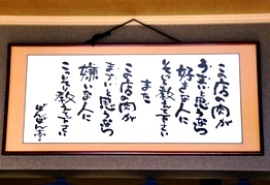 この店の肉が
うまいと思うなら
好きな人に
そっと教えて下さい
また
この店の肉が
まずいと思うなら
嫌いな人に
こっそり教えて下さい